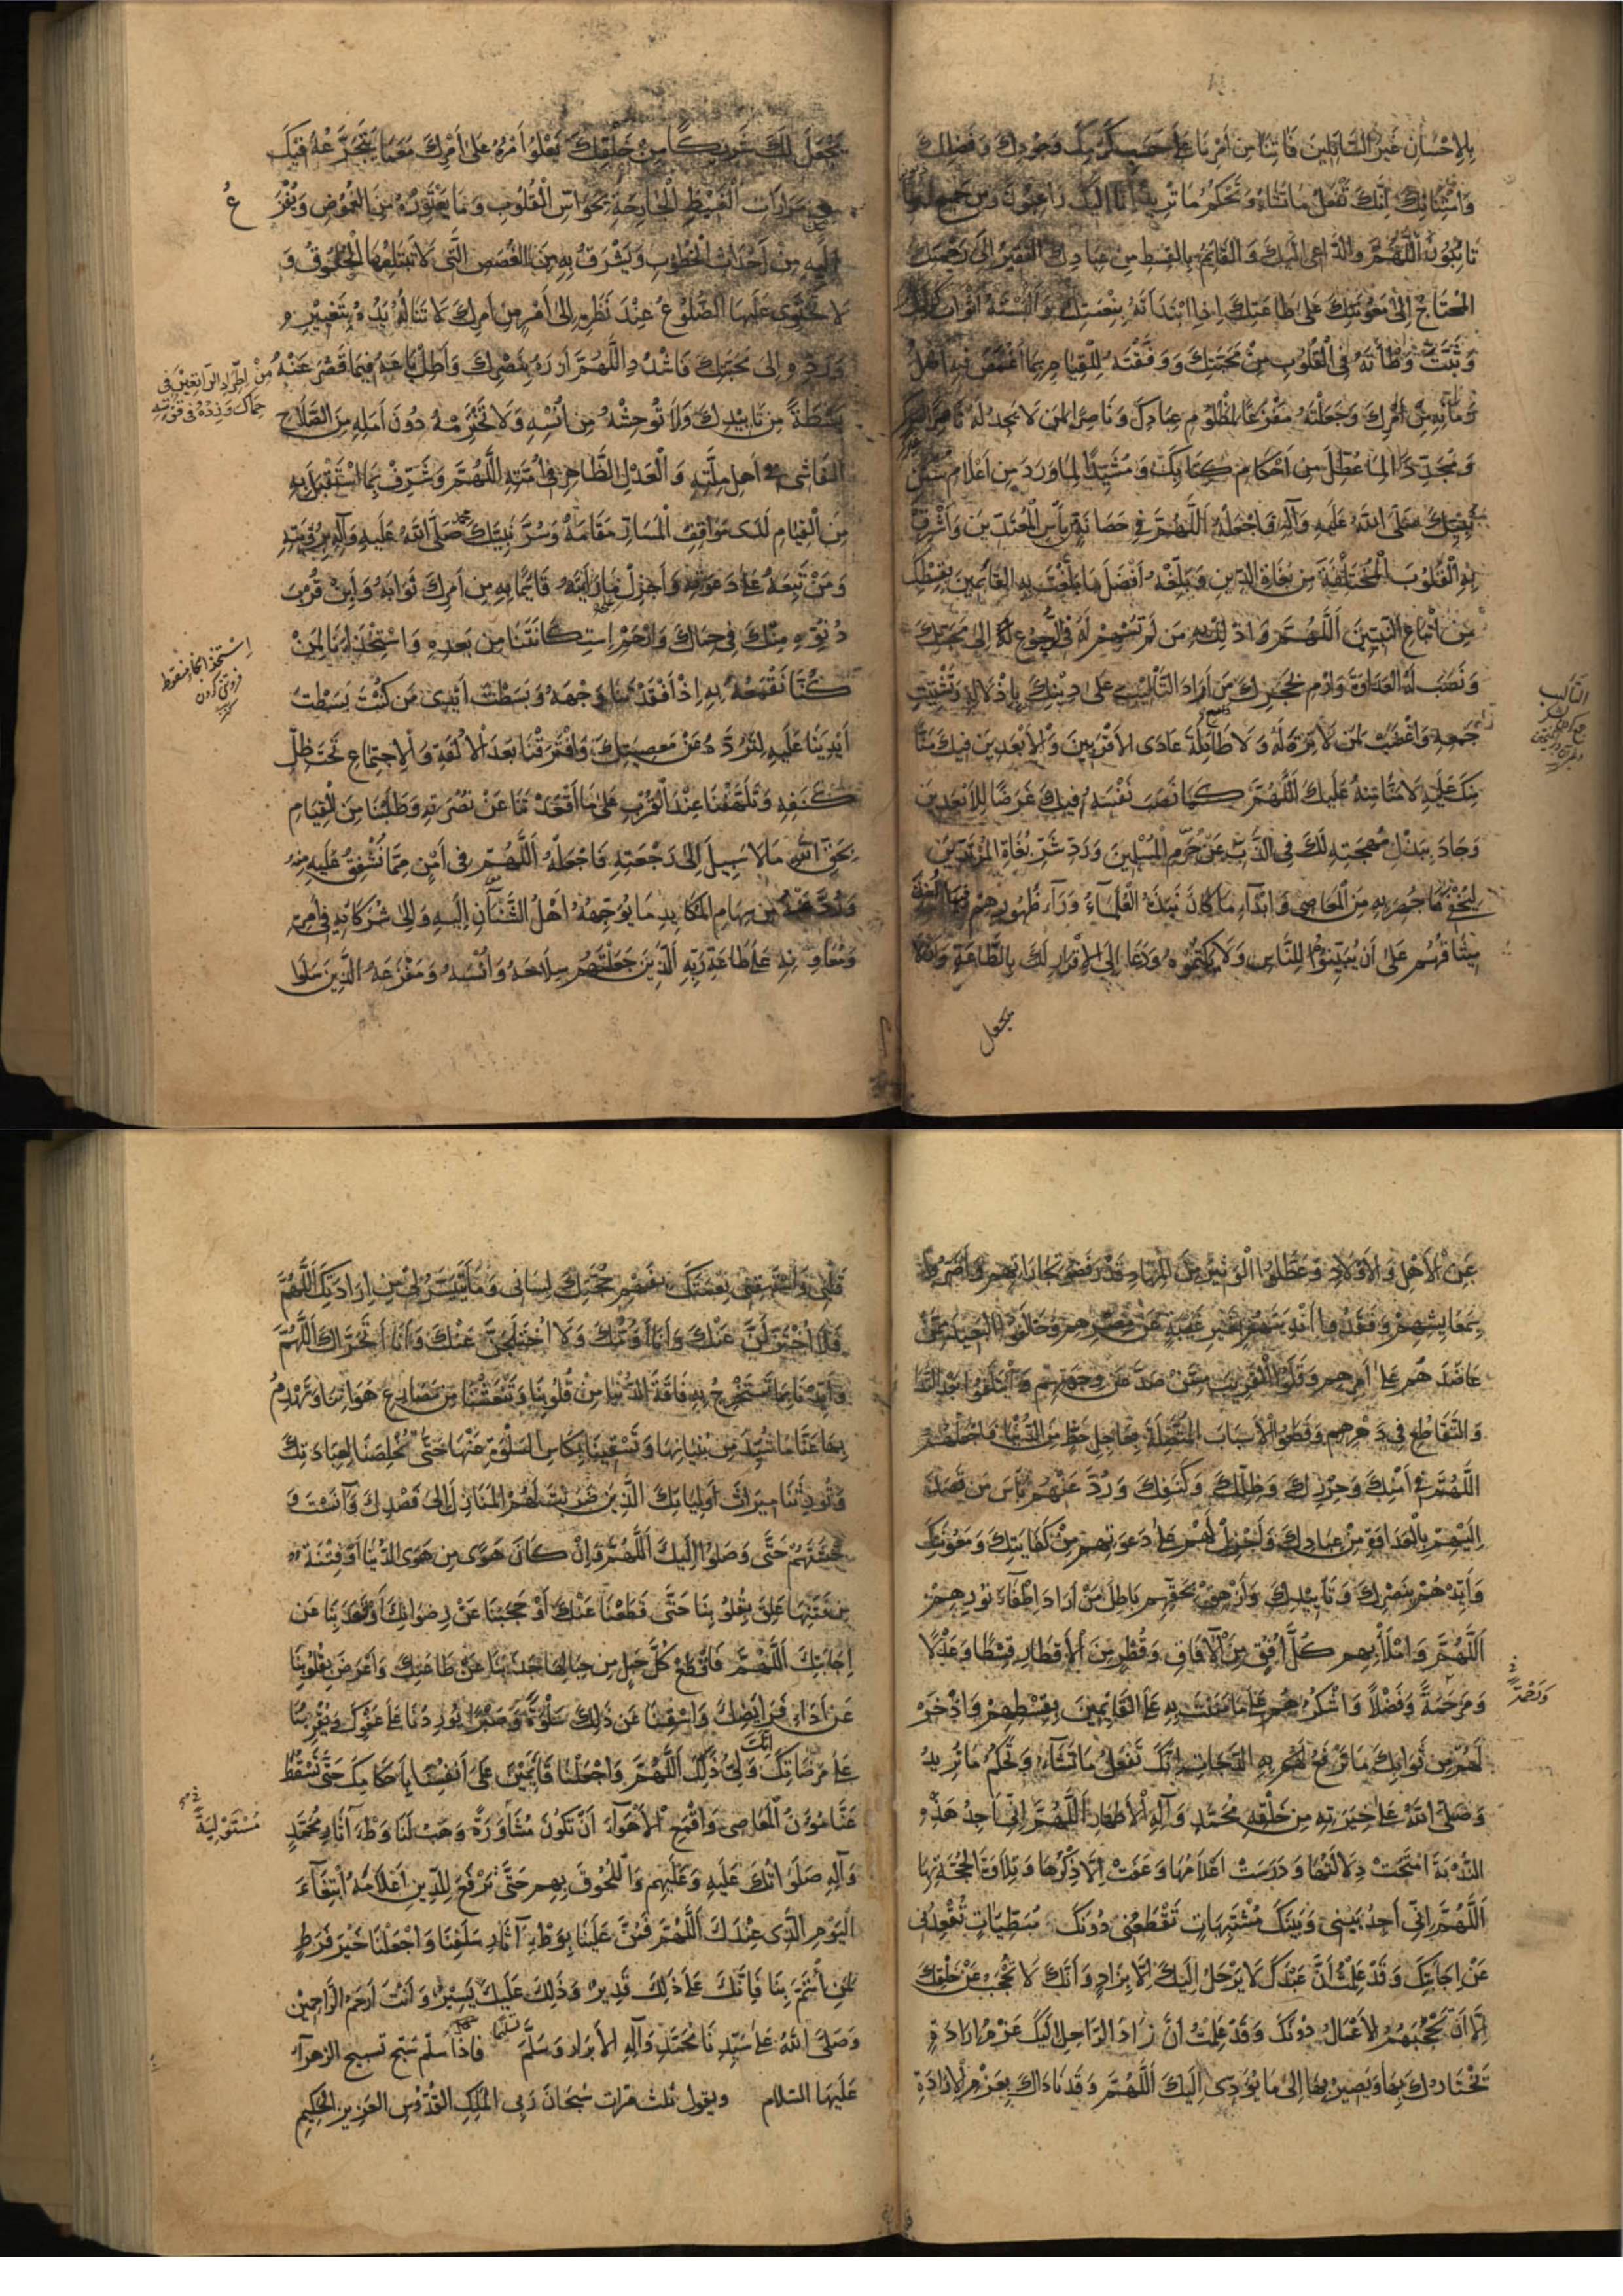 بِالْاِحْسَانِ غَيْرَ السَّائِلِينَ فَاٰتِنَا مِنْ أَمْرِنَا عَلٰى حَسَبِ كَرَمِكَ وَجُودِكَ وَفَضْلِكَ
وَامْتِنَانِكَ اِنَّكَ تَفْعَلُ مَا تَشَاءُ وَتَحْكُمُ مَا تُرِيدُ اِنَّا اِلَيْكَ رَاغِبُونَ وَمِنْ جَمِيعِ ذُنُوبِنَا
تَائِبُونَ اَللّٰهُمَّ وَالدَّاعِى اِلَيْكَ وَالْقَائِمُ بِالْقِسْطِ مِنْ عِبَادِكَ الْفَقِيرُ اِلٰى رَحْمَتِكَ
الْمُحْتَاجُ اِلٰى مَعُونَتِكَ عَلٰى طَاعَتِكَ اِذَا ابْتَدَأْتَهُ بِنِعْمَتِكَ وَاَلْبَسْتَهُ اَثْوَابَ كَرَامَتِكَ
وَثَبَّتَّ وَطْأَتَهُ فِى الْقُلُوبِ مِنْ مَحَبَّتِكَ وَوَفَّقْتَهُ لِلْقِيَامِ بِمَا اَغْمَضَ فِيهِ اَهْلُ
زَمَانِهِ مِنْ اَمْرِكَ وَجَعَلْتَهُ مَفْزَعًا لِمَظْلُومِ عِبَادِكَ وَنَاصِرًا لِمَنْ لَا يَجِدُ لَهُ نَاصِرًا غَيْرَكَ
وَمُجَدِّدًا لِمَا عُطِّلَ مِنْ اَحْكَامِ كِتَابِكَ وَمُشَيِّدًا لِمَا وَرَدَ مِنْ اَعْلَامِ سُنَنِ
نَبِيِّكَ صَلَّى اللّٰهُ عَلَيْهِ وَاٰلِهِ فَاجْعَلْهُ اَللّٰهُمَّ فِى حَصَانَةٍ مِنْ بَأْسِ الْمُعْتَدِينَ وَاَشْرِقْ
بِهِ الْقُلُوبَ الْمُخْتَلِفَةَ مِنْ بُغَاةِ الدِّينِ وَبَلِّغْهُ اَفْضَلَ مَا بَلَّغْتَ بِهِ الْقَائِمِينَ بِقِسْطِكَ
مِنْ اَتْبَاعِ النَّبِيِّينَ اَللّٰهُمَّ وَاذْلِلْ بِهِ مَنْ لَمْ تُسْهِمْ لَهُ فِى الرُّجُوعِ لَهُ اِلٰى مَحَبَّتِكَ
وَنَصَبَ لَهُ الْعَدَاوَةَ وَارْمِ بِحَجَرِكَ مَنْ اَرَادَ التَّأْلِيبَ عَلٰى دِينِكَ بِاِذْلَالِهِ وَتَشْتِيتِ
جَمْعِهِ وَاغْضَبْ لِمَنْ لَا تِرَةَ لَهُ وَلَا طَائِلَةَ عَادَى الْاَقْرَبِينَ وَالْاَبْعَدِينَ فِيكَ مَنًّا
مِنْكَ عَلَيْهِ لَا مَنًّا مِنْهُ عَلَيْكَ اَللّٰهُمَّ كَمَا نَصَبَ نَفْسَهُ فِيكَ غَرَضًا لِلْاَبْعَدِينَ
وَجَادَ بِبَذْلِ مُهْجَتِهِ لَكَ فِى الذَّبِّ عَنْ حُرَمِ الْمُسْلِمِينَ وَرَدَّ شَرَّ بُغَاةِ الْمُرْتَدِّينَ
مِيثَاقَهُمْ عَلٰى اَنْ يُبَيِّنُوهُ لِلنَّاسِ وَلَا يَكْتُمُوهُ وَدَعَا اِلَى الْاِقْرَارِ لَكَ بِالطَّاعَةِ وَاَلَّا
يجعل
يَجْعَلَ لَكَ شَرِيكًا مِنْ خَلْقِكَ يَعْلُو اَمْرُهُ عَلٰى اَمْرِكَ مَعَ مَا يَتَجَرَّعُهُ فِيكَ
مِنْ مَرَارَاتِ الْغَيْظِ الْجَارِحَةِ بِحَوَاسِّ الْقُلُوبِ وَمَا يَعْتَوِرُهُ مِنَ الْغُمُوضِ وَيَفْزَعُ
اِلَيْهِ مِنْ اَحْدَاثِ الْخُطُوبِ وَيَشْرَقُ بِهِ مِنَ الْغُصَصِ الَّتِى لَا تَبْتَلِعُهَا الْحُلُوقُ وَ
لَا تَحْتَوِى عَلَيْهَا الضُّلُوعُ عِنْدَ نَظَرِهِ اِلٰى اَمْرٍ مِنْ اَمْرِكَ لَا تَنَالُهُ يَدُهُ بِتَغْيِيرِهِ
وَرَدِّهِ اِلٰى مَحَبَّتِكَ فَاشْدُدِ اللّٰهُمَّ اَزْرَهُ بِنَصْرِكَ وَاَطِلْ بَاعَهُ فِيمَا قَصُرَ عَنْهُ
مِنْ اطِّرَادِ الرَّاتِعِينَ فِى
حِمَاكَ وَزِدْهُ فِى قُوَّتِهِ
بَسْطَةً مِنْ تَأْيِيدِكَ وَلَا تُوحِشْهُ مِنْ اُنْسِهِ وَلَا تَخْتَرِمْهُ دُونَ اَمَلِهِ مِنَ الصَّلَاحِ
الْفَاشِى فِى اَهْلِ مِلَّتِهِ وَالْعَدْلِ الظَّاهِرِ فِى اُمَّتِهِ اَللّٰهُمَّ وَشَرِّفْ بِمَا اسْتَقْبَلَ بِهِ
مِنَ الْقِيَامِ لَدٰى مَوَاقِفِ الْحِسَابِ مَقَامَهُ وَسُرَّ نَبِيَّكَ مُحَمَّد صَلَّى اللّٰهُ عَلَيْهِ وَاٰلِهِ بِرُؤْيَتِهِ
وَمَنْ تَبِعَهُ عَلٰى دَعْوَتِهِ وَاَجْزِلْ مَا رَاَيْتَهُ قَائِمًا بِهِ مِنْ اَمْرِكَ ثَوَابَهُ وَاَبِنْ قُرْبَ
دُنُوِّهِ مِنْكَ فِى حِمَاكَ وَارْحَمْ اسْتِكَانَتَنَا مِنْ بَعْدِهِ وَاسْتِخْذَاءَنَا لِمَنْ
كُنَّا نَقْمَعُهُ بِهِ اِذْ اَفْقَدْتَنَا وَجْهَهُ وَبَسَطْتَ اَيْدِى مَنْ كُنْتَ بَسَطْتَ
اَيْدِيَنَا عَلَيْهِ لِتَرُدَّهُ عَنْ مَعْصِيَتِكَ وَافْتَرَقْنَا بَعْدَ الْاُلْفَةِ وَالْاِجْتِمَاعِ تَحْتَ ظِلِّ
كَنَفِهِ وَتَلَهَّفْنَا عِنْدَ الْفَوْتِ عَلٰى مَا اَقْعَدْتَنَا عَنْ نُصْرَتِهِ وَطَلَبْنَا مِنَ الْقِيَامِ
بِحَقِّ اللّٰهِ مَا لَا سَبِيلَ اِلٰى رَجْعَتِهِ فَاجْعَلْهُ اَللّٰهُمَّ فِى اَمْنٍ مِمَّا نُشْفِقُ عَلَيْهِ مِنْهُ
وَرُدَّ عَنْهُ مِنْ سِهَامِ الْمَكَايِدِ مَا يُوَجِّهُهُ اَهْلُ الشَّنَآنِ اِلَيْهِ وَاِلٰى شُرَكَائِهِ فِى اَمْرِهِ
وَمُعَاوِنِيهِ عَلٰى طَاعَةِ رَبِّهِ الَّذِينَ جَعَلْتَهُمْ سِلَاحَهُ وَاُنْسَهُ وَمَفْزَعَهُ الَّذِينَ سَلَوْا
عَنِ الْاَهْلِ وَالْاَوْلَادِ وَعَطَّلُوا الْوَثِيرَ مِنَ الْمِهَادِ قَدْ رَفَضُوا تِجَارَاتِهِمْ وَاَضَرُّوا
بِمَعَايِشِهِمْ وَفُقِدُوا اَنْدِيَتَهُمْ بِغَيْرِ غَيْبَةٍ عَنْ مِصْرِهِمْ وَحَالَفُوا الْبَعِيدَ مِمَّنْ
عَاضَدَهُمْ عَلٰى اَمْرِهِمْ وَقَلَوُا الْقَرِيبَ مِمَّنْ صَدَّ عَنْ وِجْهَتِهِمْ وَائْتَلَفُوا بَعْدَ التَّدَابُرِ
وَالتَّقَاطُعِ فِى دَهْرِهِمْ وَقَطَعُوا الْاَسْبَابَ الْمُتَّصِلَةَ بِعَاجِلِ حَظٍّ مِنَ الدُّنْيَا فَاجْعَلْهُمُ
اللّٰهُمَّ فِى اَمْنِكَ وَحِرْزِكَ وَظِلِّكَ وَكَنَفِكَ وَرُدَّ عَنْهُمْ بَأْسَ مَنْ قَصَدَ
اِلَيْهِمْ بِالْعَدَاوَةِ مِنْ عِبَادِكَ وَاَجْزِلْ لَهُمْ عَلٰى دَعْوَتِهِمْ مِنْ كِفَايَتِكَ وَمَعُونَتِكَ
وَاَيِّدْهُمْ بِنَصْرِكَ وَتَأْيِيدِكَ وَاَزْهِقْ بِحَقِّهِمْ بَاطِلَ مَنْ اَرَادَ اِطْفَاءَ نُورِهِمْ
اَللّٰهُمَّ وَامْلَأْ بِهِمْ كُلَّ اُفُقٍ مِنَ الْاٰفَاقِ وَقُطْرٍ مِنَ الْاَقْطَارِ قِسْطًا وَعَدْلًا
وَمَرْحَمَةً وَفَضْلًا وَاشْكُرْهُمْ عَلٰى مَا مَنَنْتَ بِهِ عَلَى الْقَائِمِينَ بِقِسْطِهِمْ وَاذْخَرْ
لَهُمْ مِنْ ثَوَابِكَ مَا تَرْفَعُ لَهُمْ بِهِ الدَّرَجَاتِ اِنَّكَ تَفْعَلُ مَا تَشَاءُ وَتَحْكُمُ مَا تُرِيدُ
وَصَلَّى اللّٰهُ عَلٰى خِيَرَتِهِ مِنْ خَلْقِهِ مُحَمَّدٍ وَاٰلِهِ الْاَطْهَارِ اَللّٰهُمَّ اِنِّى اَجِدُ هٰذِهِ
النُّدْبَةَ امْتَحَتْ دِلَالَتُهَا وَدَرَسَتْ اَعْلَامُهَا وَعَفَتْ اِلَّا ذِكْرُهَا وَتِلَاوَةُ الْحُجَّةِ بِهَا
اَللّٰهُمَّ اِنِّى اَجِدُ بَيْنِى وَبَيْنَكَ مُشْتَبِهَاتٍ تَقْطَعُنِى دُونَكَ وَمُبَطِّئَاتٍ تُقْعِدُنِى
عَنْ اِجَابَتِكَ وَقَدْ عَلِمْتُ اَنَّ عَبْدَكَ لَا يَرْحَلُ اِلَيْكَ اِلَّا بِزَادٍ وَاَنَّكَ لَا تُحْجَبُ عَنْ خَلْقِكَ
اِلَّا اَنْ تَحْجُبَهُمُ الْاَعْمَالُ دُونَكَ وَقَدْ عَلِمْتُ اَنَّ زَادَ الرَّاحِلِ اِلَيْكَ عَزْمُ اِرَادَةٍ
يَخْتَارُكَ بِهَا وَيَصِيرُ بِهَا اِلٰى مَا يُؤَدِّى اِلَيْكَ اَللّٰهُمَّ وَقَدْ نَادَاكَ بِعَزْمِ الْاِرَادَةِ
قَلْبِى وَاسْتَبْقِنِى نِعْمَتَكَ بِفَهْمِ حُجَّتِكَ لِسَانِى وَمَا تَيَسَّرَ لِى مِنْ اِرَادَتِكَ اَللّٰهُمَّ
فَلَا اُخْتَزَلَنَّ عَنْكَ وَاَنَا اَؤُمُّكَ وَلَا اُخْتَلَجَنَّ عَنْكَ وَاَنَا اَتَحَرَّاكَ اَللّٰهُمَّ
وَاَيِّدْنَا بِمَا تَسْتَخْرِجُ بِهِ فَاقَةَ الدُّنْيَا مِنْ قُلُوبِنَا وَتَنْعَشُنَا مِنْ مَصَارِعِ هَوَانِهَا وَتَهْدِمُ
بِهِ عَنَّا مَا شُيِّدَ مِنْ بُنْيَانِهَا وَتَسْقِينَا بِكَأْسِ السَّلْوَةِ عَنْهَا حَتّٰى تُخْلِصَنَا لِعِبَادَتِكَ
وَتُورِثَنَا مِيرَاثَ اَوْلِيَائِكَ الَّذِينَ ضَرَبْتَ لَهُمُ الْمَنَازِلَ اِلٰى قَصْدِكَ وَاٰنَسْتَ وَ
حْشَتَهُمْ حَتّٰى وَصَلُوا اِلَيْكَ اَللّٰهُمَّ وَاِنْ كَانَ هَوًى مِنْ هَوَى الدُّنْيَا اَوْ فِتْنَةٌ
مِنْ فِتَنِهَا عَلِقَ بِقُلُوبِنَا حَتّٰى قَطَعَنَا عَنْكَ اَوْ حَجَبَنَا عَنْ رِضْوَانِكَ اَوْ قَعَدَ بِنَا عَنْ
اِجَابَتِكَ اَللّٰهُمَّ فَاقْطَعْ كُلَّ حَبْلٍ مِنْ حِبَالِهَا جَذَبَنَا عَنْ طَاعَتِكَ وَاَعْرَضَ بِقُلُوبِنَا
عَنْ اَدَاءِ فَرَائِضِكَ وَاسْقِنَا عَنْ ذٰلِكَ سَلْوَةً وَصَبْرًا يُورِدُنَا عَلٰى عَفْوِكَ وَيُقَرِّبُنَا
عَلٰى مَرْضَاتِكَ اِنَّكَ وَلِىُّ ذٰلِكَ اَللّٰهُمَّ وَاجْعَلْنَا قَائِمِينَ عَلٰى اَنْفُسِنَا بِاَحْكَامِكَ حَتّٰى تُسْقِطَ
عَنَّا مُؤَنَ الْمَعَاصِى وَاقْمَعِ الْاَهْوَاءَ اَنْ تَكُونَ مُشَاوَرَةً وَهَبْ لَنَا وَطْءَ اٰثَارِ مُحَمَّدٍ
مُسْتَوْلِيَةً
وَاٰلِهِ صَلَوَاتُكَ عَلَيْهِ وَعَلَيْهِمْ وَاللُّحُوقَ بِهِمْ حَتّٰى تَرْفَعَ لِلدِّينِ اَعْلَامَهُ ابْتِغَاءَ
الْيَوْمِ الَّذِى عِنْدَكَ اَللّٰهُمَّ فَمُنَّ عَلَيْنَا بِوَطْءِ اٰثَارِ سَلَفِنَا وَاجْعَلْنَا خَيْرَ فَرَطٍ
لِمَنِ ائْتَمَّ بِنَا فَاِنَّكَ عَلٰى ذٰلِكَ قَدِيرٌ وَذٰلِكَ عَلَيْكَ يَسِيرٌ وَاَنْتَ اَرْحَمُ الرَّاحِمِينَ
وَصَلَّى اللّٰهُ عَلٰى سَيِّدِنَا مُحَمَّدٍ وَاٰلِهِ الْاَبْرَارِ وَسَلَّمَ تسليما فاذا سلّم سبّح تسبيح الزهراء
عليها السلام ويقول ثلث مرات سُبْحَانَ رَبِّى الْمَلِكِ الْقُدُّوسِ الْعَزِيزِ الْحَكِيمِ